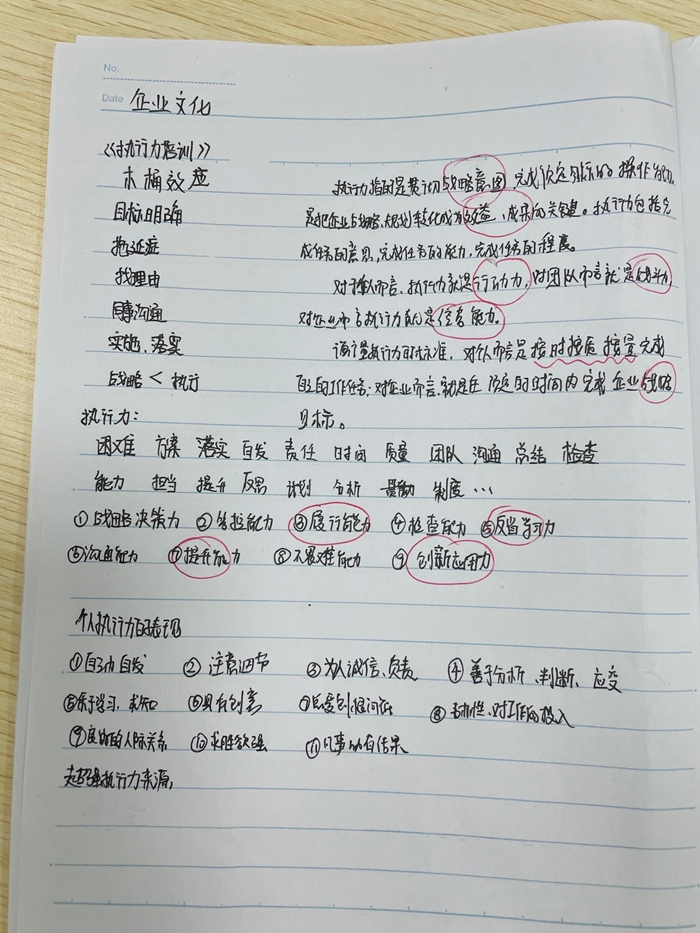 No.
Date 企业文化
《执行力培训》
木桶效应 执行力指的是贯彻战略意图,完成预定目标的操作能力,
目标明确 是把企业战略、规划转化成为效益、成果的关键。执行力包括完
拖延症 成任务的意愿,完成任务的能力,完成任务的程度。
找理由 对个人而言,执行力就是行动力,对团队而言就是战斗力
同事沟通 对企业而言执行力就是经营能力。
实施、落实 衡量执行力的标准,对个人而言是按时按质按量完成
战略 < 执行 自己的工作任务;对企业而言,就是在预定的时间内完成企业战略
执行力: 目标。
困难 方案 落实 自发 责任 时间 质量 团队 沟通 总结 检查
能力 担当 提升 反思 计划 分析 制度 …
①战略决策力 ②掌控能力 ③履行能力 ④检查能力 ⑤反省学习力
⑥沟通能力 ⑦提升能力 ⑧不畏难能力 ⑨创新应用力
个人执行力的表现
①自动自发 ②注意细节 ③为人诚信、负责 ④善于分析、判断、应变
⑤乐于学习、求知 ⑥具有创意 ⑧韧性、对工作的投入
⑨良好的人际关系 ⑩求胜欲强 ⑪凡事功有结果
超强执行力来源,